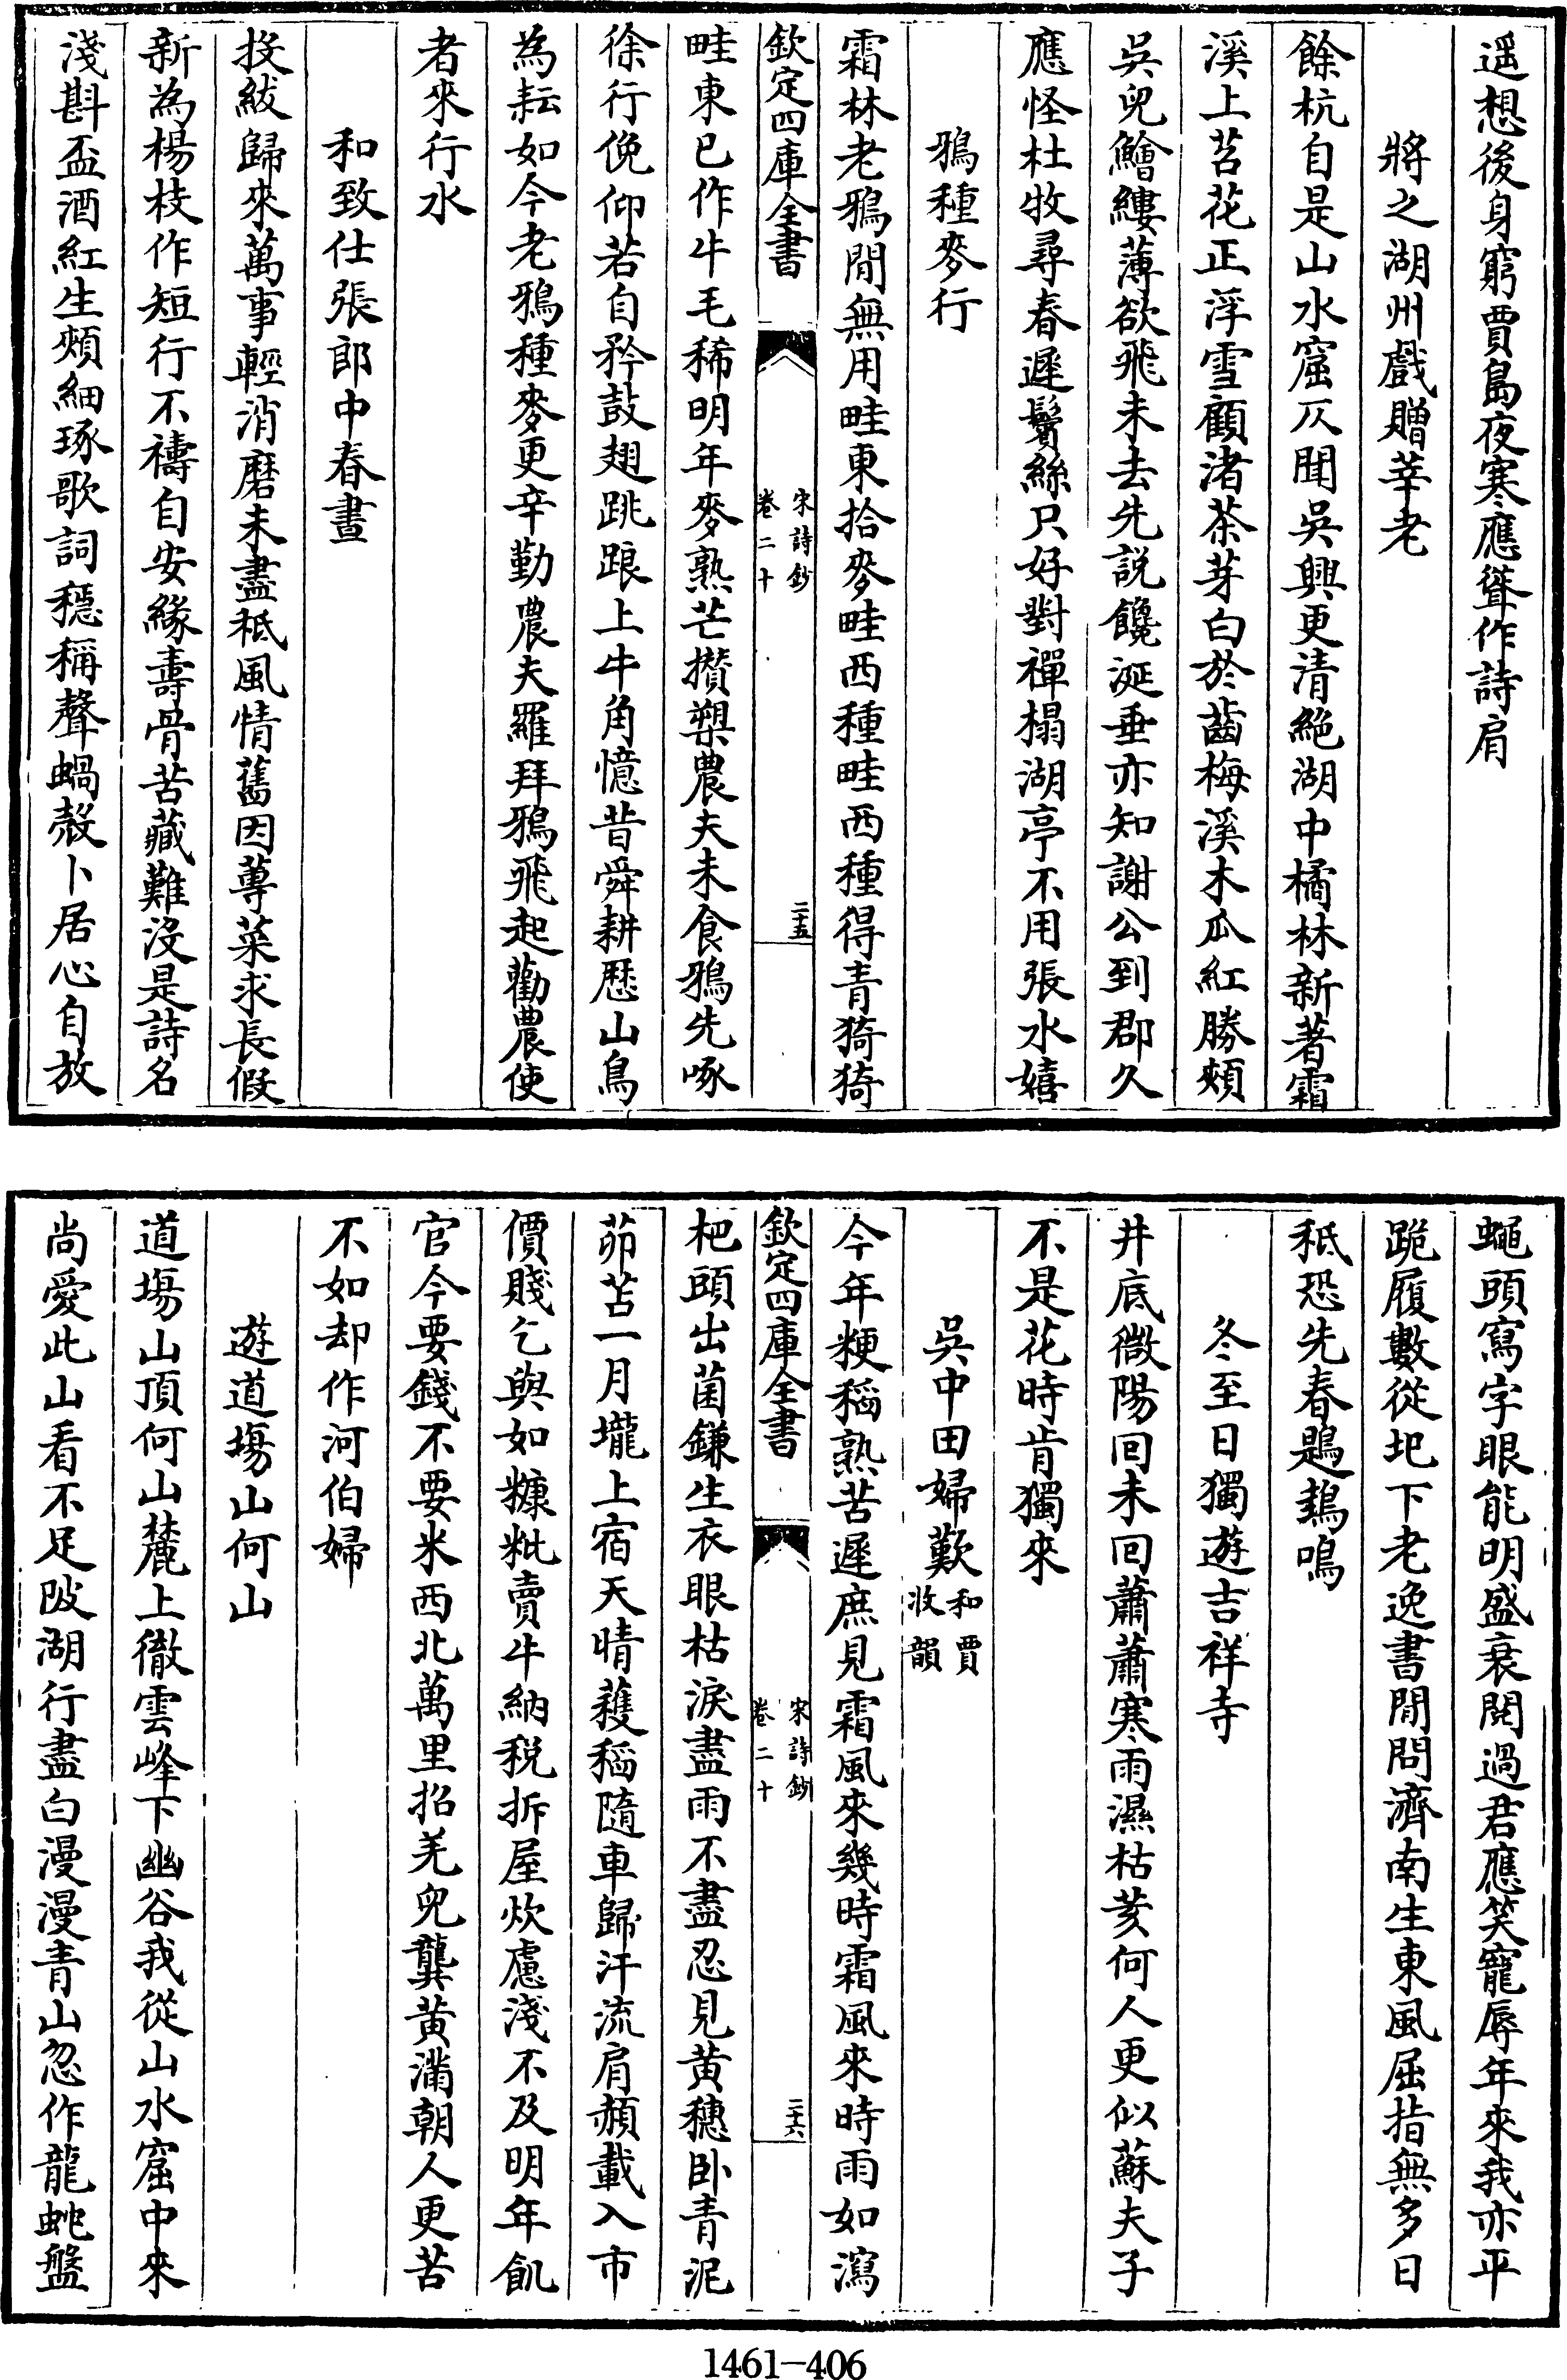 遥想後身窮賈島夜寒應聳作詩肩
將之湖州戲贈莘老
餘杭自是山水窟仄聞吳興更清絶湖中橘林新著霜
溪上苕花正浮雪顧渚茶芽白於齒梅溪木瓜紅勝頰
吳兒鱠縷薄欲飛未去先説饞涎垂亦知謝公到郡久
應怪杜牧尋春遲鬢絲只好對禪榻湖亭不用張水嬉
鴉種麥行
霜林老鴉閒無用畦東拾麥畦西種畦西種得青猗猗
欽定四庫全書
宋詩鈔
卷二十
二十五
畦東已作牛毛稀明年麥熟芒攢槊農夫未食鴉先啄
徐行俛仰若自矜鼓翅跳踉上牛角憶昔舜耕歴山鳥
為耘如今老鴉種麥更辛勤農夫羅拜鴉飛起勸農使
者來行水
和致仕張郎中春晝
投紱歸來萬事輕消磨未盡秪風情舊因蓴菜求長假
新為楊枝作短行不禱自安緣壽骨苦藏難没是詩名
淺斟盃酒紅生頰細琢歌詞穩稱聲蝸殻卜居心自放
蠅頭寫字眼能明盛衰閱過君應笑寵辱年來我亦平
跪履數從圯下老逸書閒問濟南生東風屈指無多日
秪恐先春鶗鴂鳴
冬至日獨遊吉祥寺
井底微陽回未回蕭蕭寒雨濕枯荄何人更似蘇夫子
不是花時肯獨來
吳中田婦歎和賈收韻
今年粳稻熟苦遲庶見霜風來幾時霜風來時雨如瀉
欽定四庫全書
宋詩鈔
卷二十
二十六
杷頭出菌鎌生衣眼枯淚盡雨不盡忍見黄穗卧青泥
茆苫一月壠上宿天晴穫稻隨車歸汗流肩赬載入市
價賤乞與如糠粃賣牛納税拆屋炊慮淺不及明年飢
官今要錢不要米西北萬里招羌兒龔黄滿朝人更苦
不如却作河伯婦
遊道塲山何山
道塲山頂何山麓上徹雲峰下幽谷我從山水窟中來
尚愛此山看不足陂湖行盡白漫漫青山忽作龍蛇盤
1461-406